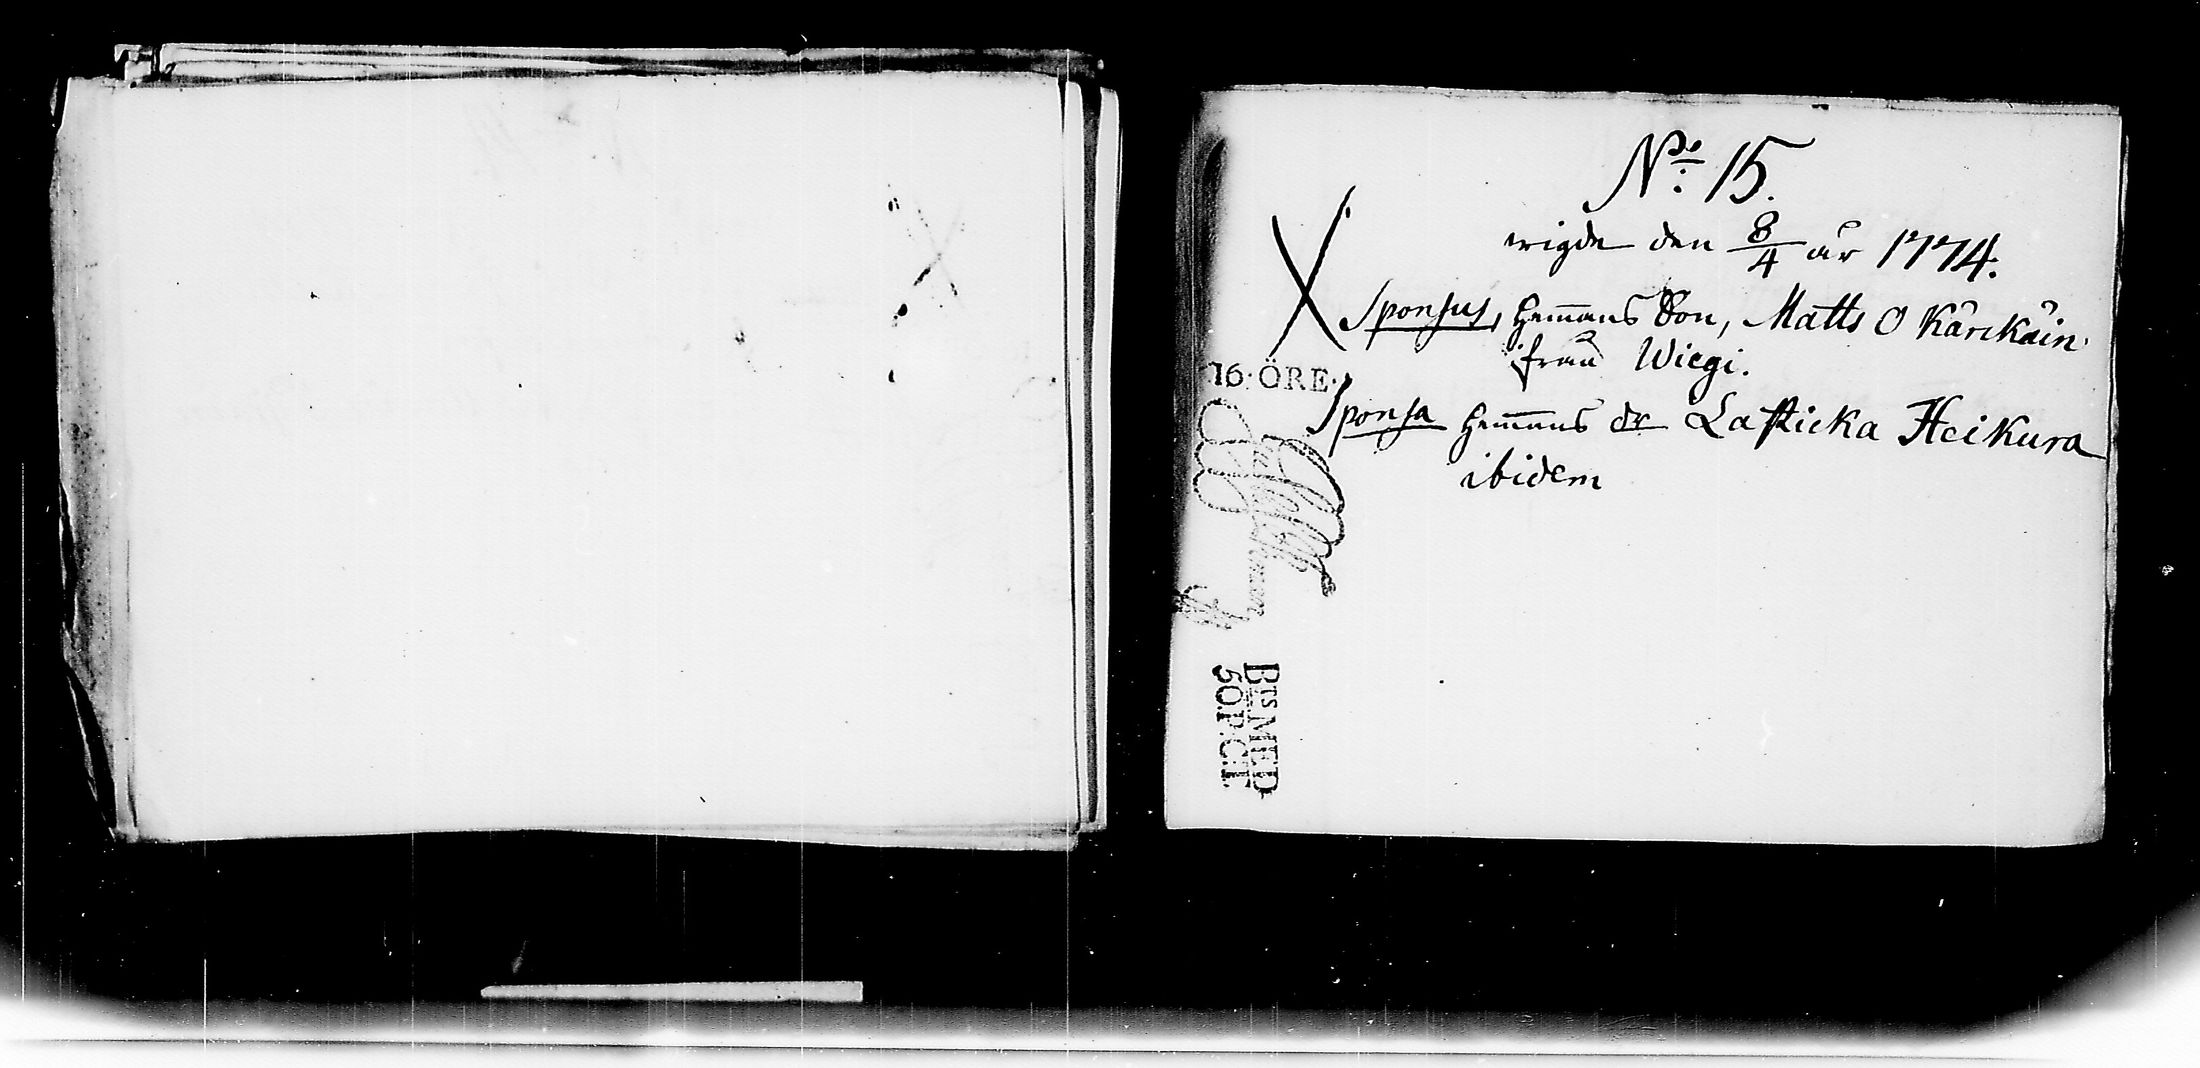 No: 15.
wigde den 8/4 år 1774.
Sponsus, Hem̄ans Son, Matts O Kärckäin
från Wiegi.
16. ÖRE.
Sponsa Hem̄ans dr Lasticka Heikura
ibidem
Bts MED
50.P.C:T.